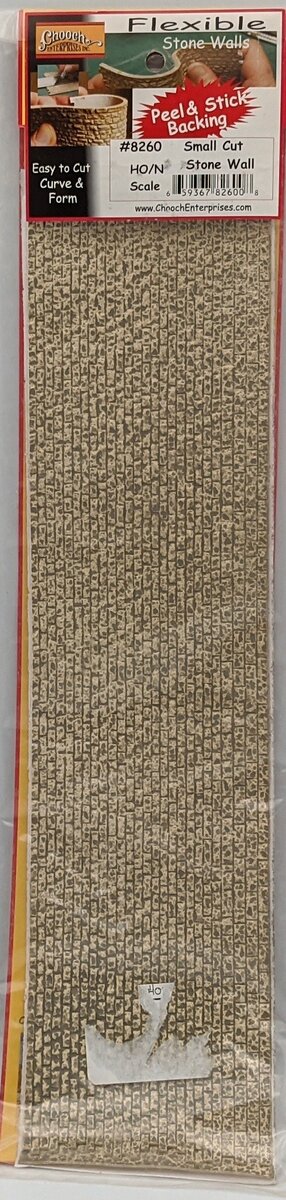 Chooch
ENTERPRISES INC.
Flexible
Stone Walls
Peel & Stick
Backing
Easy to Cut
Curve &
Form
#8260 Small Cut
HO/N Stone Wall
Scale
6 59367 82600 8
www.ChoochEnterprises.com
40